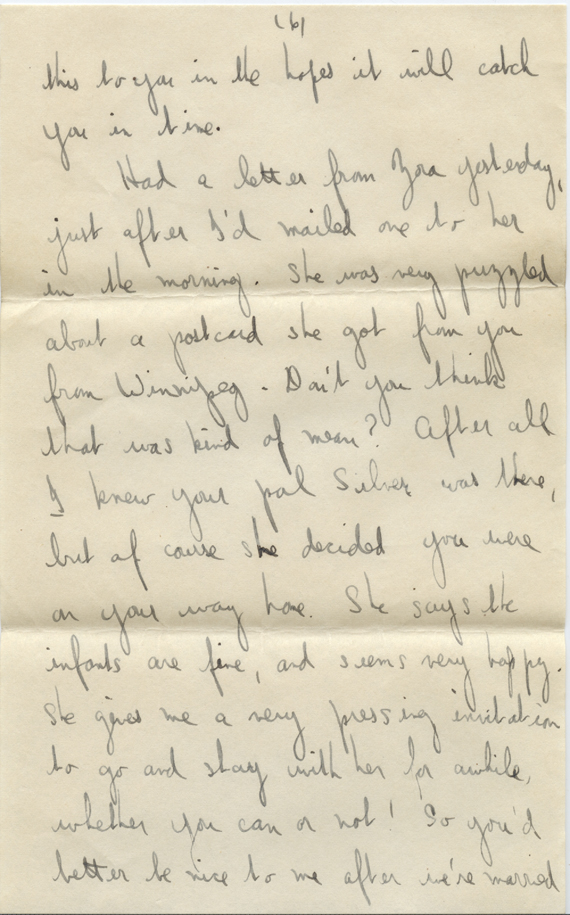 (6)
this to you in the hopes it will catch
you in time.
Had a letter from Zora yesterday,
just after I'd mailed one to her
in the morning. She was very puzzled
about a postcard she got from you
from Winnipeg. Don't you think
that was kind of mean? After all
I knew your pal Silver was there,
but of course she decided you were
on your way home. She says the
infants are fine, and seems very happy.
She gives me a very pressing invitation
to go and stay with her for awhile,
whether you can or not! So you'd
better be nice to me after we're married